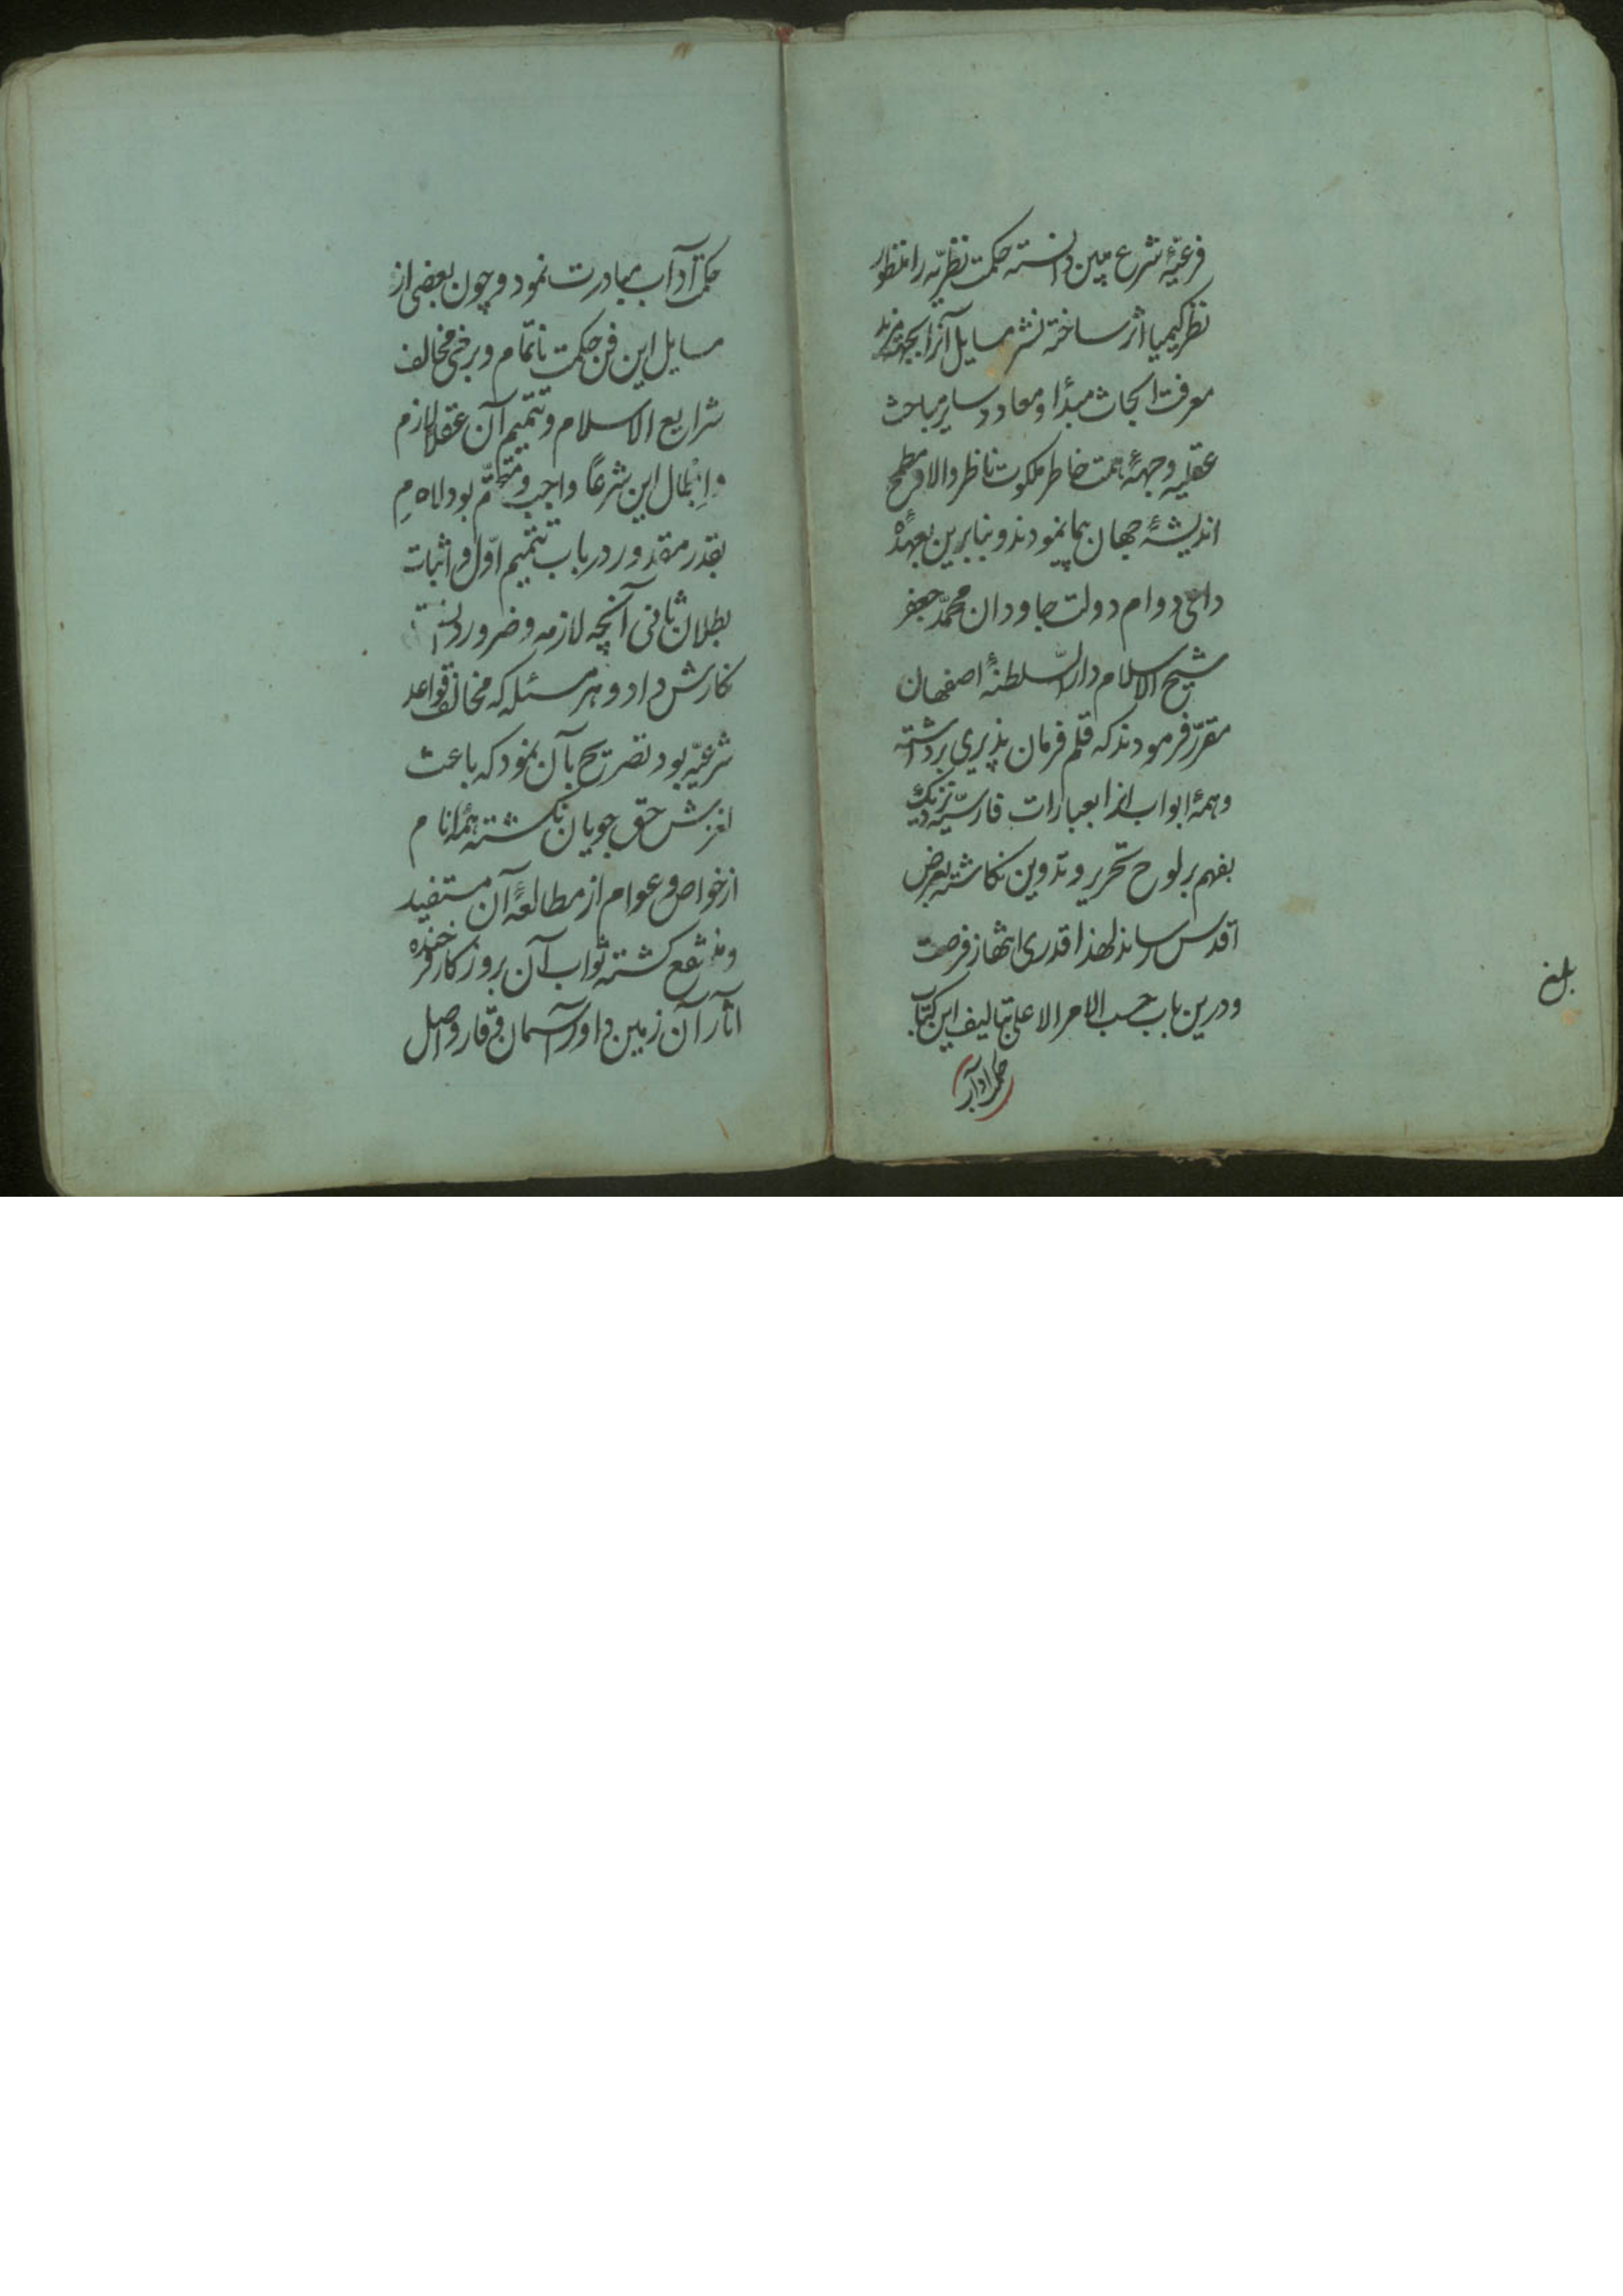 فرعیّهٔ شرع مبین دانسته حکمت نظریّه را منظور
نظر کیمیا اثر ساخته نشر مسایل آنرا بجهت مزید
معرفت ابحاث مبدأ و معاد و سایر مباحث
عقلیه وجههٔ همت خاطر ملکوت ناظر والا و مطمح
اندیشهٔ جهان پیما نمودند و بنابرین بعهدهٔ
داعی دوام دولت جاودان محمّد جعفر
شیخ الاسلام دار السّلطنهٔ اصفهان
مقرّر فرمودند که قلم فرمان پذیری برداشته
و همهٔ ابواب انرا بعبارات فارسیّه نزدیک
بفهم بر لوح تحریر و تدوین نکاشته بعرض
اقدس رساند لهذا قدری انتهاز فرصت
و درین باب حسب الامر الاعلی بتالیف این کتاب
حکمت آداب
بلغ
حکمت آداب مبادرت نمود و چون بعضی از
مسایل این فن حکمت ناتمام و برخی مخالف
شرایع الاسلام و تتمیم آن عقلاً لازم
و ابطال این شرعًا واجب و متحتّم بود لاهم
بقدر مقدور در باب تتمیم اوّل و اثبات
بطلان ثانی آنچه لازمه و ضرور دانست
نکارش داد و هر مسئله که مخالف قواعد
شرعیّه بود تصریح بآن نمود که باعث
لغزش حق جویان نکشته همهٔ انام
از خواص و عوام از مطالعهٔ آن مستفید
و منتفع کشته ثواب آن بروزکار فرخنده
آثار آن زمین داور آسمان وقار واصل